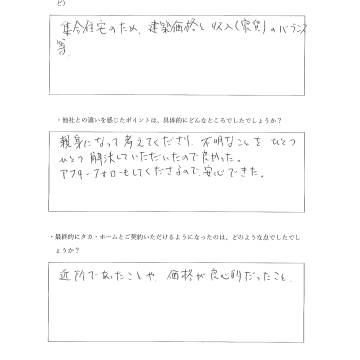 ど)
集合住宅のため、建築価格と収入(家賃)のバランス
等。
・他社との違いを感じたポイントは、具体的にどんなところでしたでしょうか？
親身になって考えてくださり、不明なことをひとつ
ひとつ解決していただいたので良かった。
アフターフォローもしてくださるので、安心できた。
・最終的にタカ・ホームとご契約いただけるようになったのは、どのような点でしたでし
ょうか？
近所であったことや、価格が良心的だったこと。